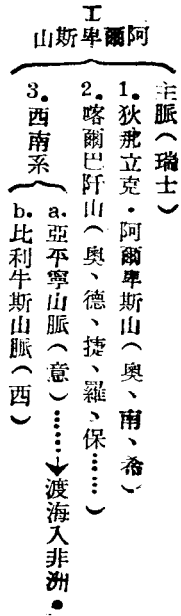 I
阿爾卑斯山
主脈(瑞士)
1.狄那立克·阿爾卑斯山(奧、南、希)
2.喀爾巴阡山(奧、德、捷、羅、保……)
3.西南系
a.亞平寧山脈(意)……→渡海入非洲.
b.比利牛斯山脈(西)